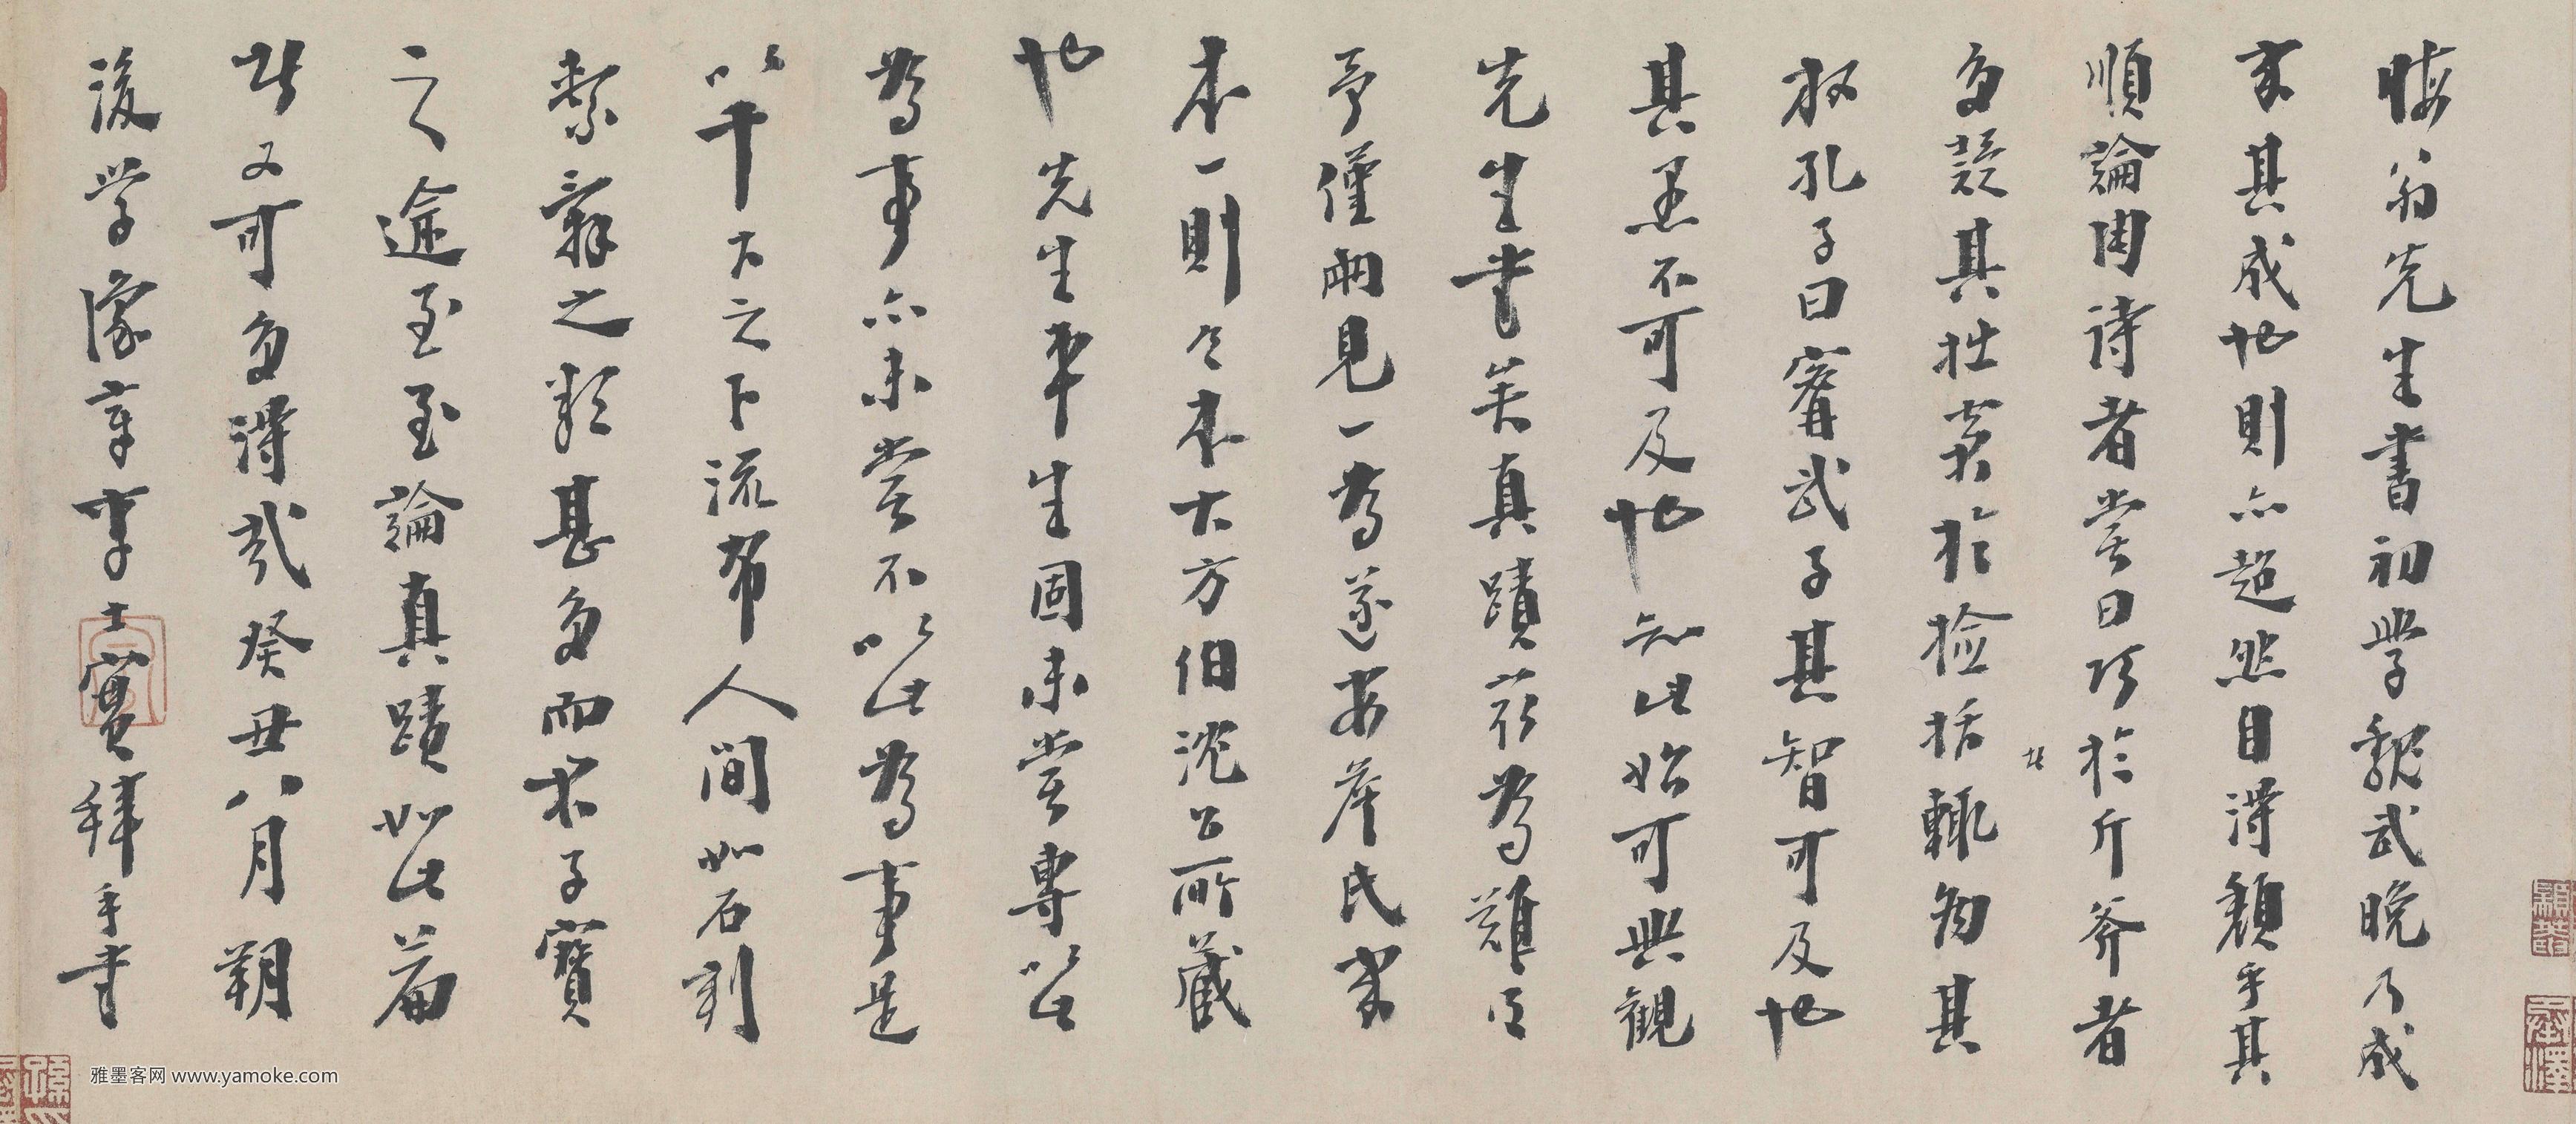 晦翁先生書初學魏武晚乃成
家其成也則亦超然自得類乎其
順論陶詩者嘗曰巧於斤斧者
多疑其拙窘於撿括輒為其
放孔子曰甯武子其智可及也
其愚不可及也知此始可與觀
先生書矣真蹟茲為難得
予僅兩見一為遂安
本一則今本大方伯沈公所藏
也先生平生固未嘗專以
為事亦未嘗不以此為事是
以筆下之下流布人間如石刻
繫辭之類甚多而求子寶
之途至至論真蹟如此篇
者又可多得哉癸丑八月朔
後學豫章李士實拜手書
雅墨客网 www.yamoke.com